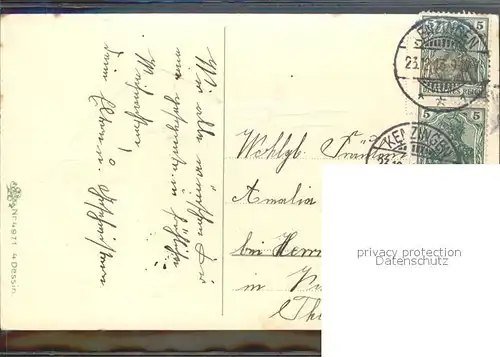 Wir alle wünschen Dir
eine gesegnete u. fröhliche
Weihnachten!
Deine Eltern u. Geschwister
Nr. 4971 4 Dessin.
KENZINGEN
23.12.
5
5
KENZINGEN
Wohlgb. Fräulein
Amalia
bei Herrn
in
(Th
privacy protection
Datenschutz